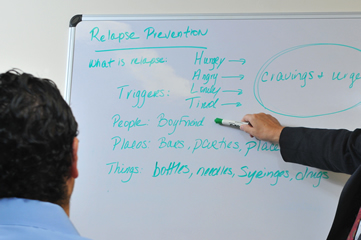 Relapse Prevention
What is relapse: Hungry →
Angry →
Triggers: Lonely →
Tired →
Cravings & urge
People: Boyfriend
Places: Bars, parties, place
Things: bottles, needles, Syringes, drugs